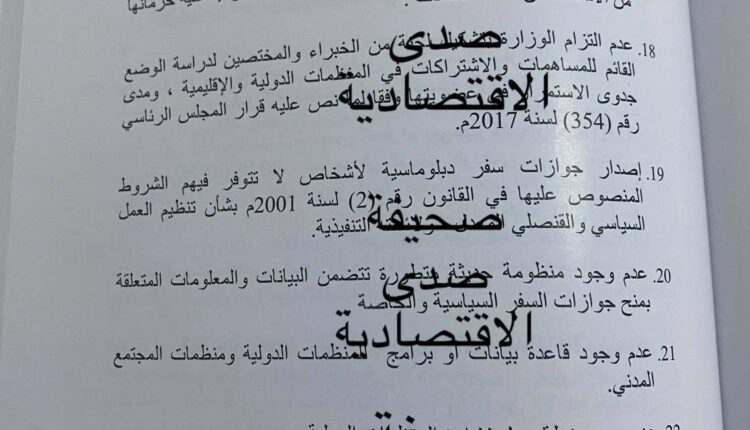 من
عليه حرمانها
18. عدم التزام الوزارة من الخبراء والمختصين لدراسة الوضع
القائم للمساهمات والاشتراكات في المنظمات الدولية والإقليمية ، ومدى
جدوى الاستمرار في عضويتها وفقا لما نص عليه قرار المجلس الرئاسي
رقم (354) لسنة 2017م.
19. إصدار جوازات سفر دبلوماسية لأشخاص لا تتوفر فيهم الشروط
المنصوص عليها في القانون رقم (2) لسنة 2001م بشأن تنظيم العمل
السياسي والقنصلي التنفيذية.
20. عدم وجود منظومة حديثة ومتطورة تتضمن البيانات والمعلومات المتعلقة
بمنح جوازات السفر السياسية والخاصة
21. عدم وجود قاعدة بيانات أو برامج للمنظمات الدولية ومنظمات المجتمع
المدني.
22.
صدى
الاقتصادية
صحيفة
صدى
الاقتصادية